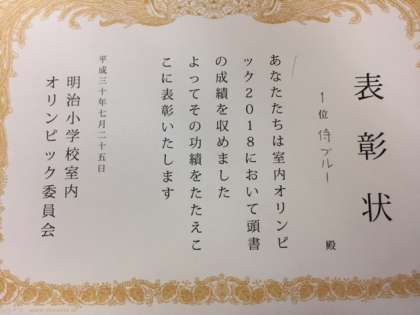 表彰状
1位 侍ブルー 殿
あなたたちは室内オリンピ
ック2018において頭書
の成績を収めました
よってその功績をたたえこ
こに表彰いたします
平成三十年七月二十五日
明治小学校室内
オリンピック委員会